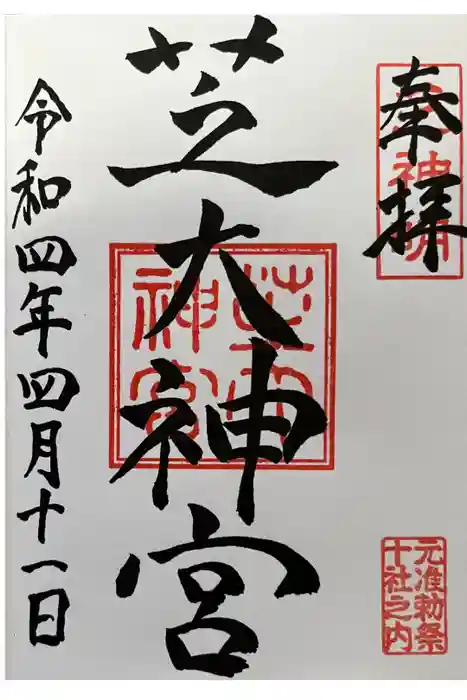 奉拝
元神明
芝大神宮
芝大神宮
元准勅祭
十社之内
令和四年四月十一日